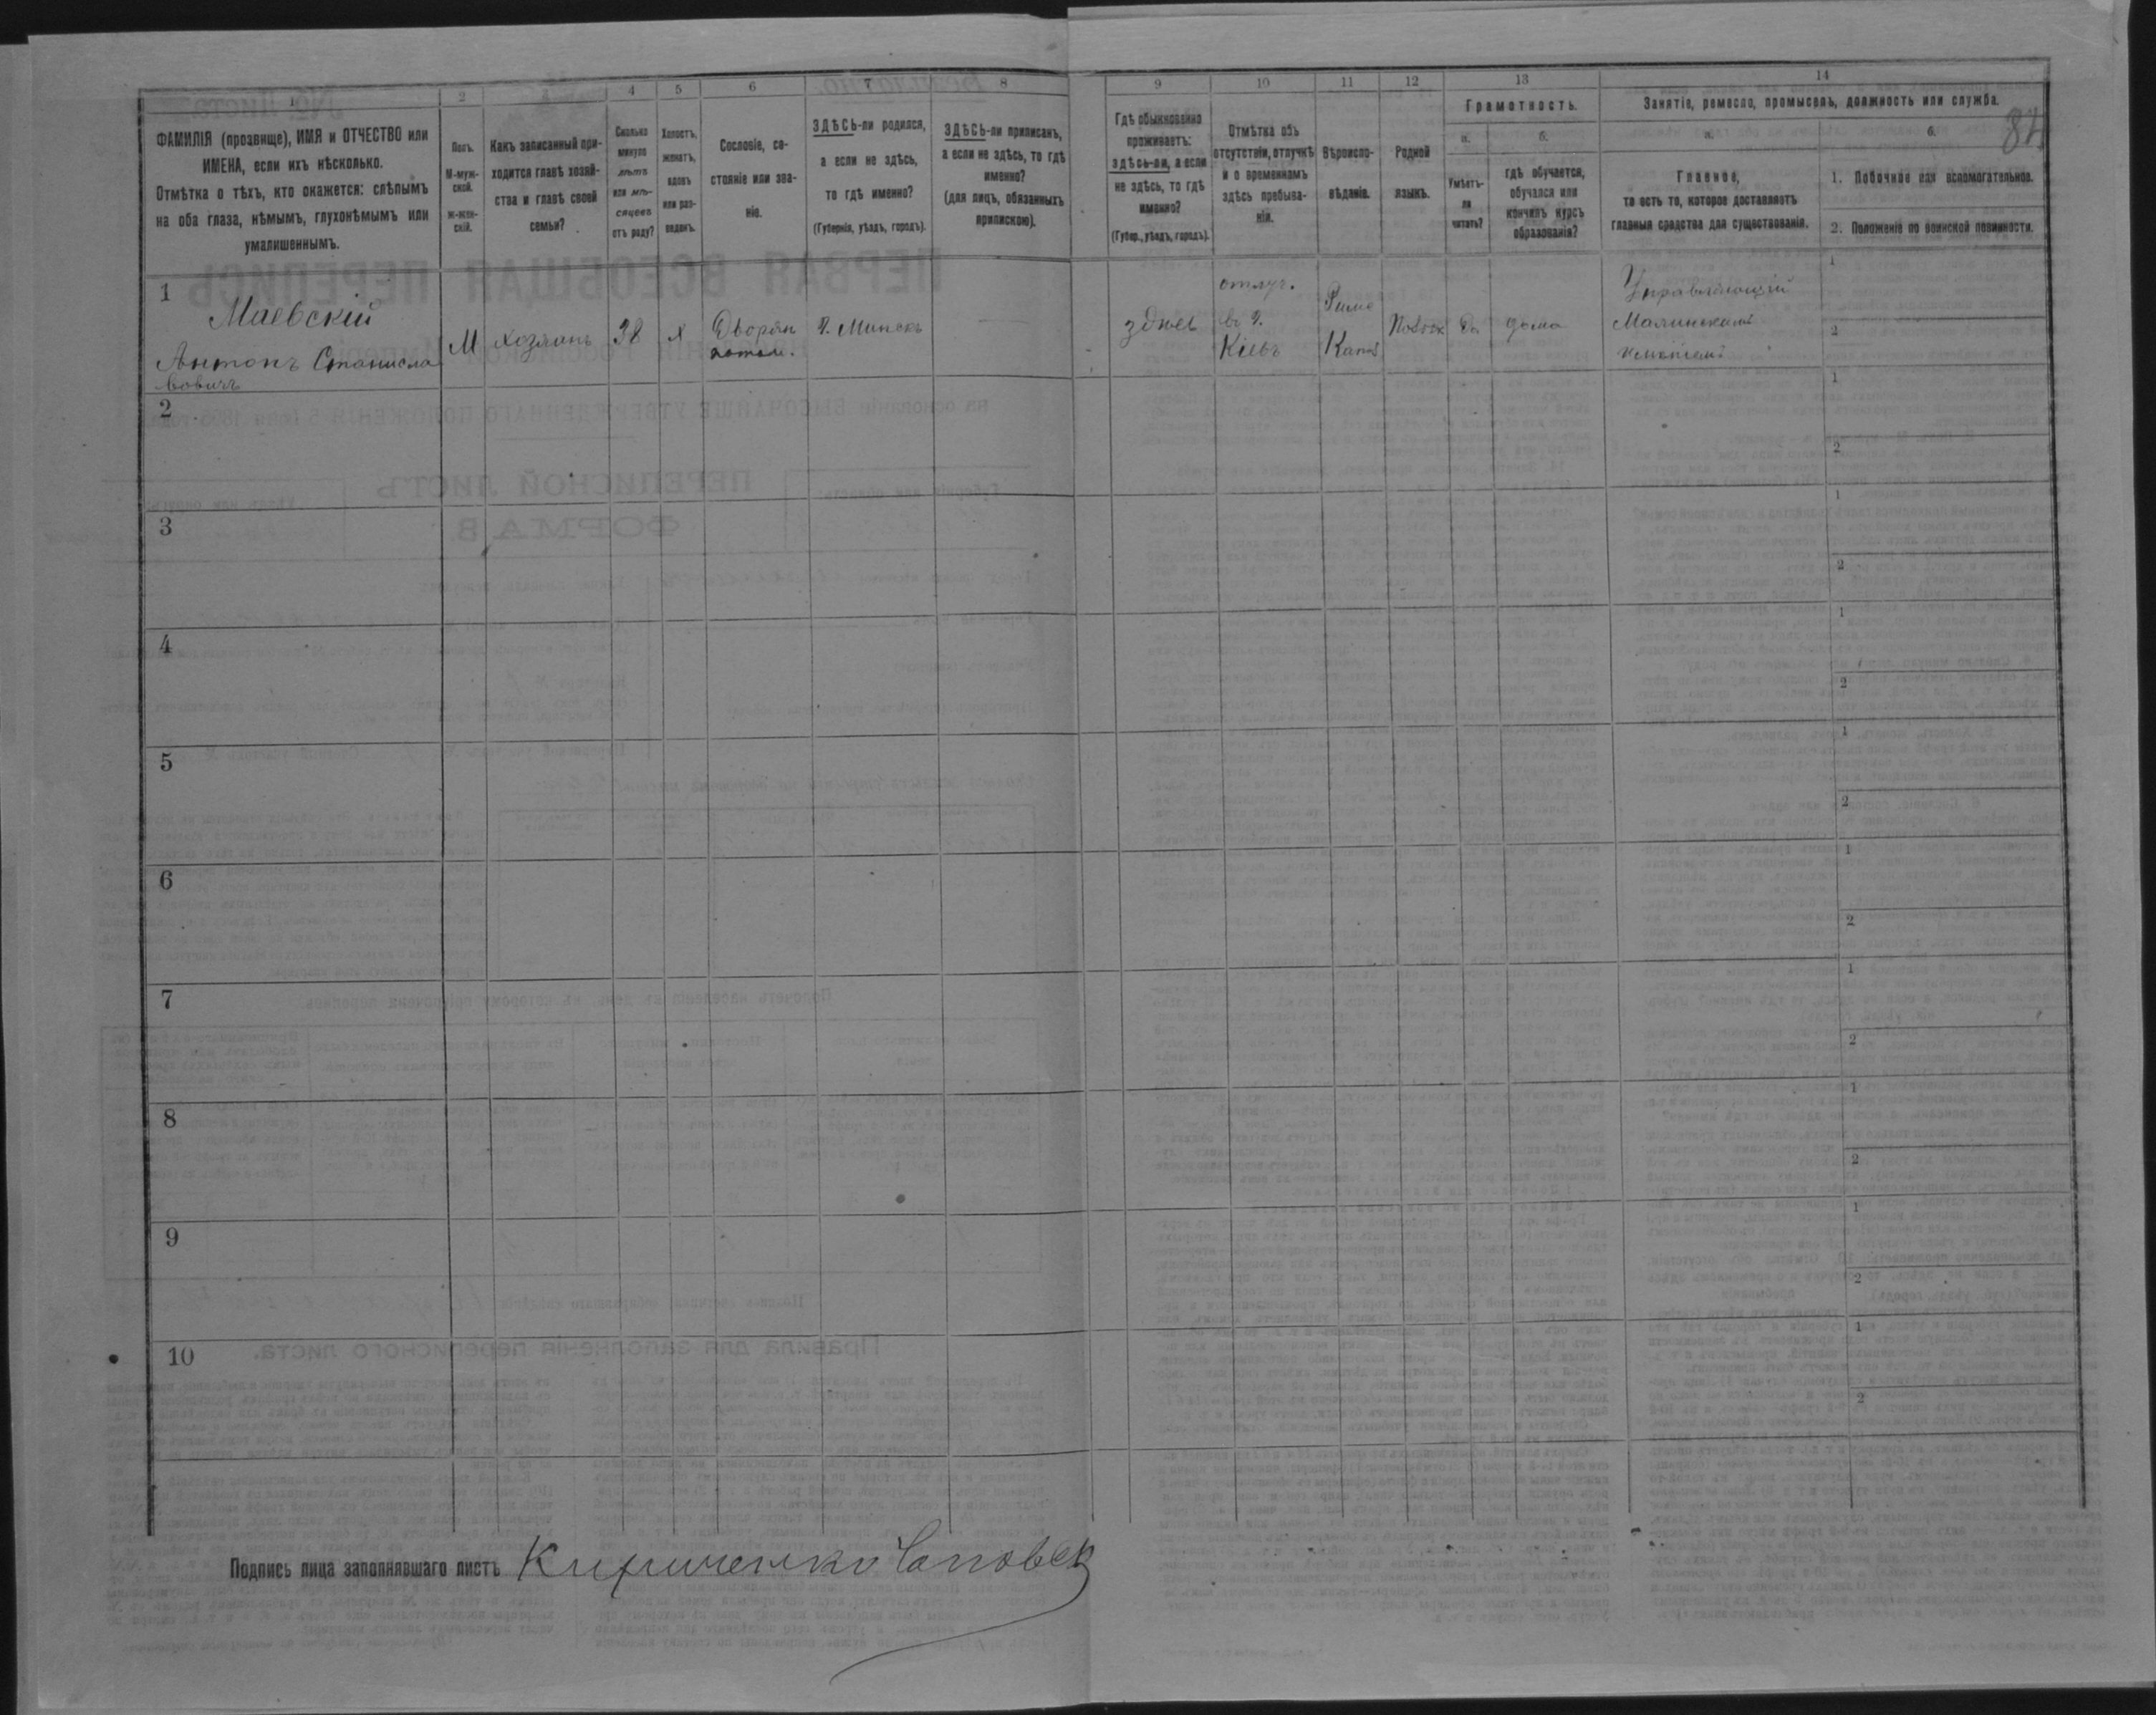 1
2
3
4
5
6
7
8
9
10
11
12
13
14
84
ФАМИЛІЯ (прозвище), ИМЯ и ОТЧЕСТВО или
ИМЕНА, если ихъ нѣсколько.
Отмѣтка о тѣхъ, кто окажется: слѣпымъ
на оба глаза, нѣмымъ, глухонѣмымъ или
умалишеннымъ.
Полъ.
М-муж-
ской.
ж-жен-
скій.
Какъ записанный при-
ходится главѣ хозяй-
ства и главѣ своей
семьи?
Сколько
минуло
лѣтъ
или мѣ-
сяцевъ
отъ роду?
Холостъ,
женатъ,
вдовъ
или раз-
веденъ.
Сословіе, со-
стояніе или зва-
ніе.
ЗДѢСЬ-ли родился,
а если не здѣсь,
то гдѣ именно?
(Губернія, уѣздъ, городъ).
ЗДѢСЬ-ли приписанъ,
а если не здѣсь, то гдѣ
именно?
(для лицъ, обязанныхъ
припискою).
Гдѣ обыкновенно
проживаетъ:
здѣсь-ли, а если
не здѣсь, то гдѣ
именно?
(Губер., уѣздъ, городъ).
Отмѣтка объ
отсутствіи, отлучкѣ
и о временномъ
здѣсь пребыва-
ніи.
Вѣроиспо-
вѣданіе.
Родной
языкъ.
Грамотность.
а.
б.
Умѣетъ-
ли
читать?
гдѣ обучается,
обучался или
кончилъ курсъ
образованія?
Занятіе, ремесло, промыселъ, должность или служба.
а.
б.
Главное,
то есть то, которое доставляетъ
главныя средства для существованія.
1. Побочное или вспомогательное.
2. Положеніе по воинской повинности.
1
Маевскій
Антонъ Станисла
вовичъ
М
хозяинъ
38
х
Дворян
потом.
г. Минскъ
здѣсь
отлуч.
въ г.
Кіевъ
Римс
Катол
Польск
да
дома
Управляющій
Малинскимъ
имѣніемъ
1
2
2
1
2
3
1
2
4
1
2
5
1
2
6
1
2
7
1
2
8
1
2
9
1
2
10
1
2
Подпись лица заполнявшаго листъ Кириченко